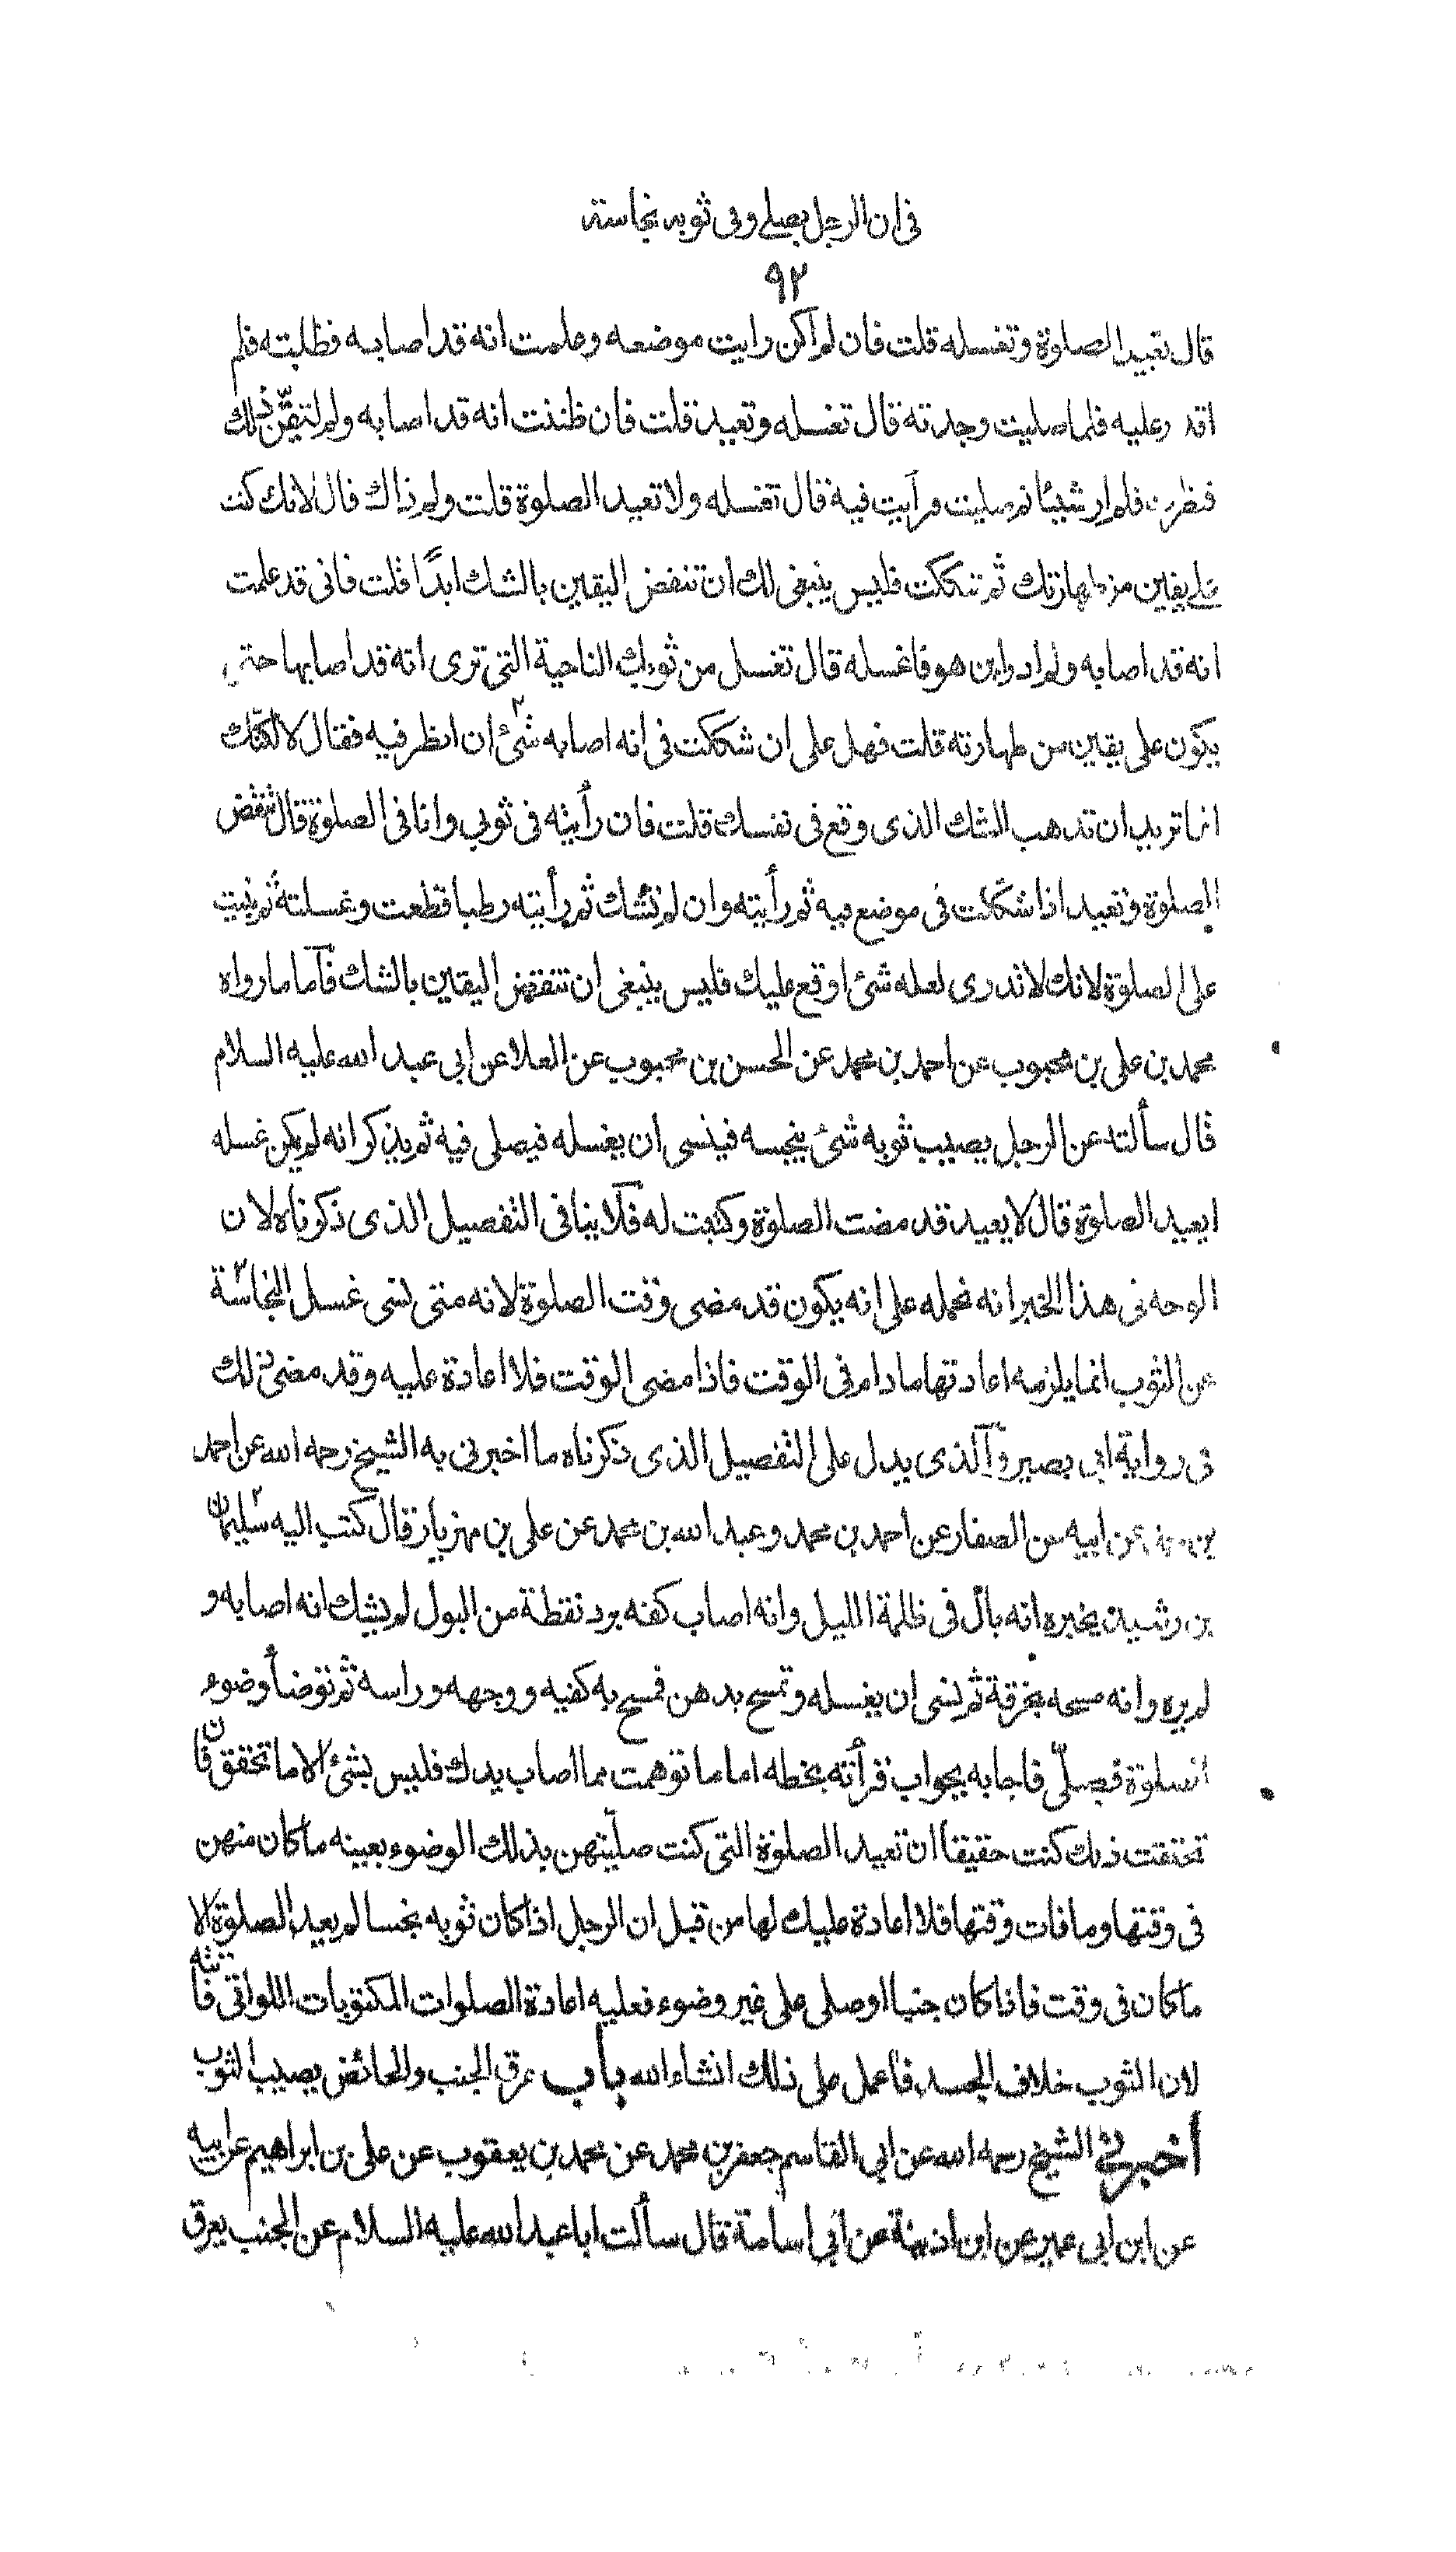 فی ان الرجل یصلے وفی ثوبه نجاسته
۹۲
قال تعيد الصلوة وتغسله قلت فان لم اكن رايت موضعه وعلمت انه قد اصابه فطلبته فلم
اقدر عليه فلما صليت وجدته قال تغسله وتعيد قلت فان ظننت انه قد اصابه ولم اتيقن ذلك
فنظرت فلم ار شيئا ثم صليت فرأيت فيه قال تغسله ولا تعيد الصلوة قلت ولم ذاك قال لانك كنت
على يقين من طهارتك ثم شككت فليس ينبغى لك ان تنقض اليقين بالشك ابدًا قلت فانى قد علمت
انه قد اصابه ولم ادر اين هو فاغسله قال تغسل من ثوبك الناحية التى ترى انه قد اصابها حتى
يكون على يقين من طهارته قلت فهل على ان شككت فى انه اصابه شئ ان انظر فيه فقال لا لكنك
انما تريد ان تذهب الشك الذى وقع فى نفسك قلت فان رأيته فى ثوبى وانا فى الصلوة قال تنقض
الصلوة وتعيد اذا شككت فى موضع فيه ثم رأيته وان لم تشك ثم رأيته رطبا قطعت وغسلته ثم بنيت
على الصلوة لانك لا تدرى لعله شئ اوقع عليك فليس ينبغى ان تنقض اليقين بالشك فاما ما رواه
محمد بن على بن محبوب عن احمد بن محمد عن الحسن بن محبوب عن العلا عن ابى عبد الله عليه السلام
قال سألته عن الرجل يصيب ثوبه شئ ينجسه فينسى ان يغسله فيصلى فيه ثم يذكر انه لم يكن غسله
ايعيد الصلوة قال لا يعيد قد مضت الصلوة وكتبت له فلا ينافى التفصيل الذى ذكرناه لان
الوجه فى هذا الخبر انه نحمله على انه يكون قد مضى وقت الصلوة لانه متى نسى غسل النجاسة
عن الثوب انما يلزمه اعادتها مادام فى الوقت فاذا مضى الوقت فلا اعادة عليه وقد مضى ذلك
فى رواية ابى بصير والذى يدل على التفصيل الذى ذكرناه ما اخبرنى به الشيخ رحمه الله عن احمد
بن محمد عن ابيه عن الصفار عن احمد بن محمد وعبد الله بن محمد عن على بن مهزيار قال كتب اليه سليمان
بن رشيد يخبره انه بال فى ظلمة الليل وانه اصاب كفه برد نقطة من البول لم يشك انه اصابه و
لم يره وانه مسحه بخرقة ثم نسى ان يغسله وتمسح بدهن فمسح به كفيه ووجهه وراسه ثم توضأ وضوء
الصلوة فصلّى فاجابه بجواب قرأته بخطه اما ما توهمت مما اصاب يدك فليس بشئ الا ما تحقق فان
تحققت ذلك كنت حقيقا ان تعيد الصلوة التى كنت صلّيتهن بذلك الوضوء بعينه ما كان منهن
فى وقتها وما فات وقتها فلا اعادة عليك لها من قبل ان الرجل اذا كان ثوبه نجسا لم يعد الصلوة الا
ما كان فى وقت فاذا كان جنبا او صلى على غير وضوء فعليه اعادة الصلوات المكتوبات اللواتى فاتته
لان الثوب خلاف الجسد فاعمل على ذلك انشاء الله باب عرق الجنب والحائض يصيب الثوب
أخبرنى الشيخ رحمه الله عن ابى القاسم جعفر بن محمد عن محمد بن يعقوب عن على بن ابراهيم عن ابيه
عن ابن ابى عمير عن ابن اذينة عن ابى اسامة قال سألت ابا عبد الله عليه السلام عن الجنب يعرق